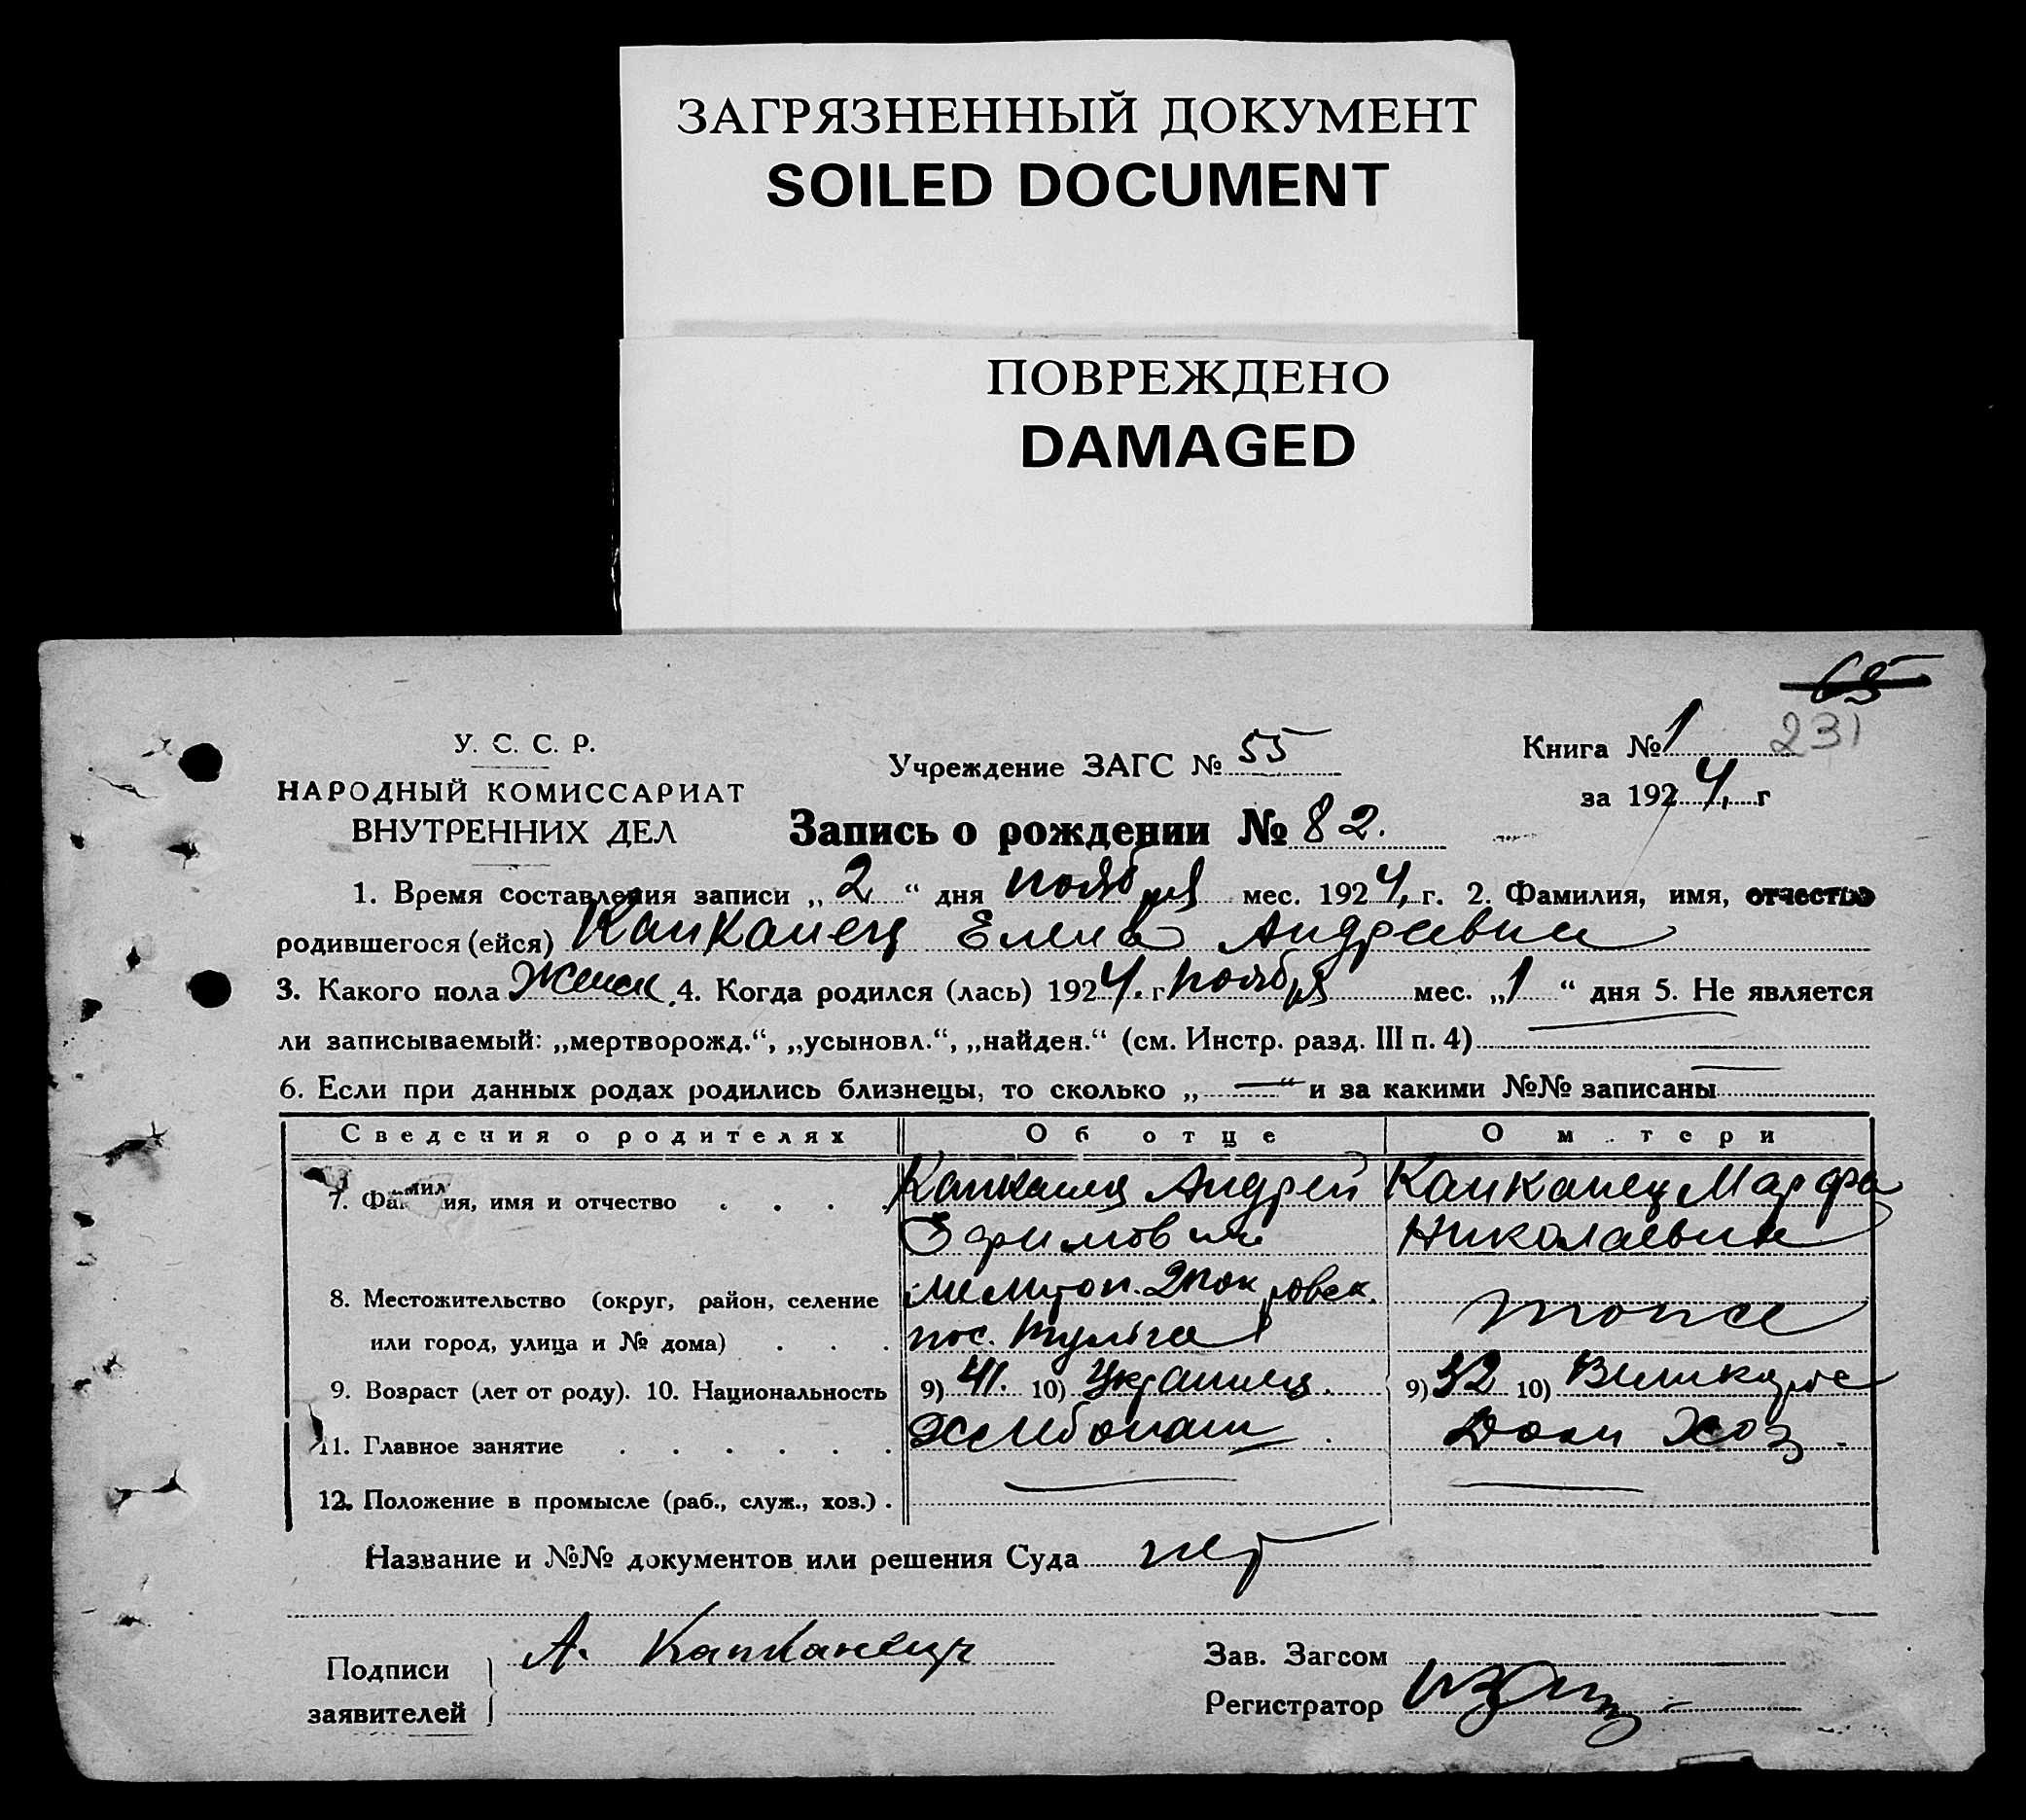 ЗАГРЯЗНЕННЫЙ ДОКУМЕНТ
SOILED DOCUMENT
ПОВРЕЖДЕНО
DAMAGED
65
231
У. С. С. Р.
НАРОДНЫЙ КОМИССАРИАТ
ВНУТРЕННИХ ДЕЛ
Учреждение ЗАГС № 55
Книга № 1
за 1924, г
Запись о рождении № 82.
1. Время составления записи „2“ дня ноября мес. 1924, г. 2. Фамилия, имя, отчество
родившегося (ейся) Капканец Елена Андревна
3. Какого пола Женск. 4. Когда родился (лась) 1924. г ноября мес. „1“ дня 5. Не является
ли записываемый: „мертворожд.“, „усыновл.“, „найден.“ (см. Инстр. разд. III п. 4)
6. Если при данных родах родились близнецы, то сколько „—“ и за какими №№ записаны
Сведения о родителях Об отце О м тери
7. Фамилия, имя и отчество Капканец Андрей Капканец Марфа
Ефимович Николаевна
8. Местожительство (округ, район, селение
или город, улица и № дома) пос.
9. Возраст (лет от роду). 10. Национальность 9) 41. 10) Украинец. 9) 32 10)
11. Главное занятие Хлебопаш Дом Хоз.
12. Положение в промысле (раб., служ., хоз.) .
Название и №№ документов или решения Суда нет
Подписи
заявителей А. Капканець
Зав. Загсом
Регистратор